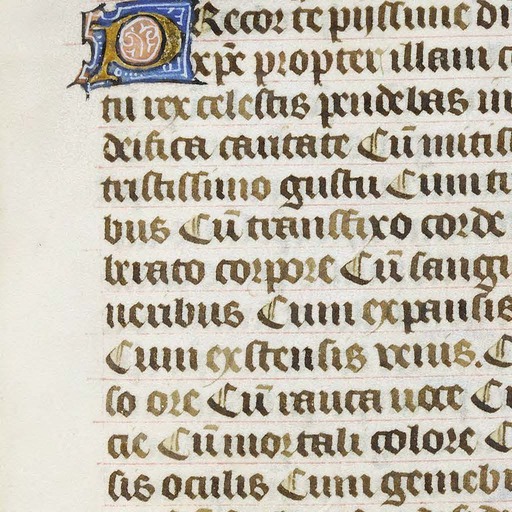 PRecor te pijssime di
xpe propter illam c
tu rex celestis pendebas in
deifica caritate Cū mitis
tristissimo gustu Cum ti
bus Cū transfixo corde
briato corpore Cū sangui
neribus Cum expansis
Cum extensis venis. C
so ore Cū rauca uoce Cu
cie Cū mortali colore C
sis oculis Cum gemeb